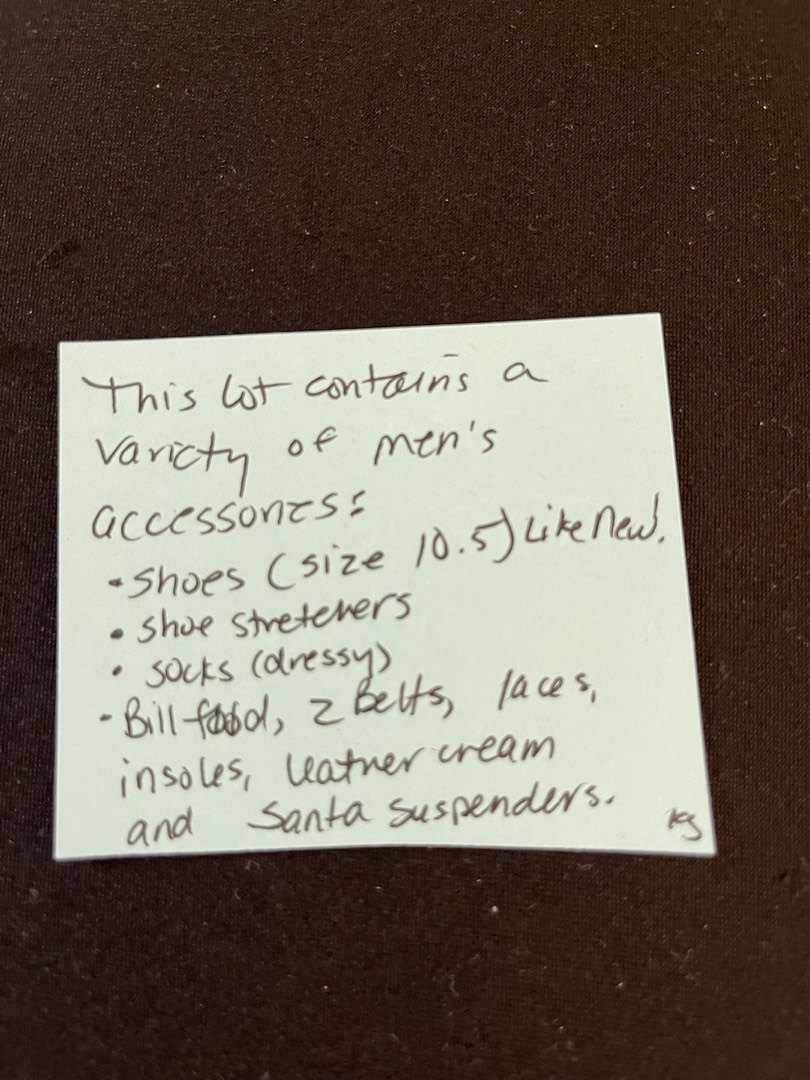 This lot contains a
variety of men's
accessories:
• shoes (size 10.5) Like New!
• shoe stretchers
• socks (dressy)
- Bill-fold, 2 Belts, laces,
insoles, leather cream
and Santa suspenders.
kg